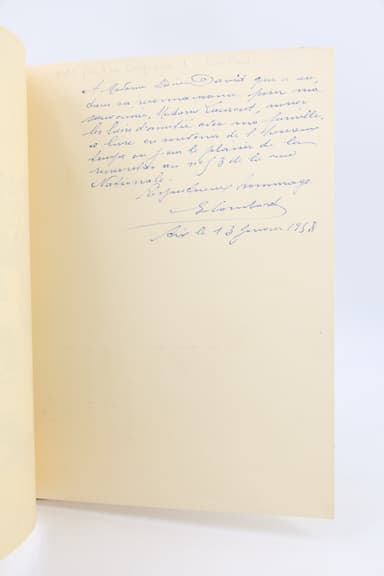 A Madame David qui a su,
dans sa reconnaissance pour ma
Madame Laurent, nouer
les liens d'amitié avec ma famille,
ce livre en souvenir de l'heureux
temps où j'eus le plaisir de la
rencontrer au n° 53 de la rue
Nationale.
Respectueux hommage
E Lombard
Aix le 13 janvier 1958